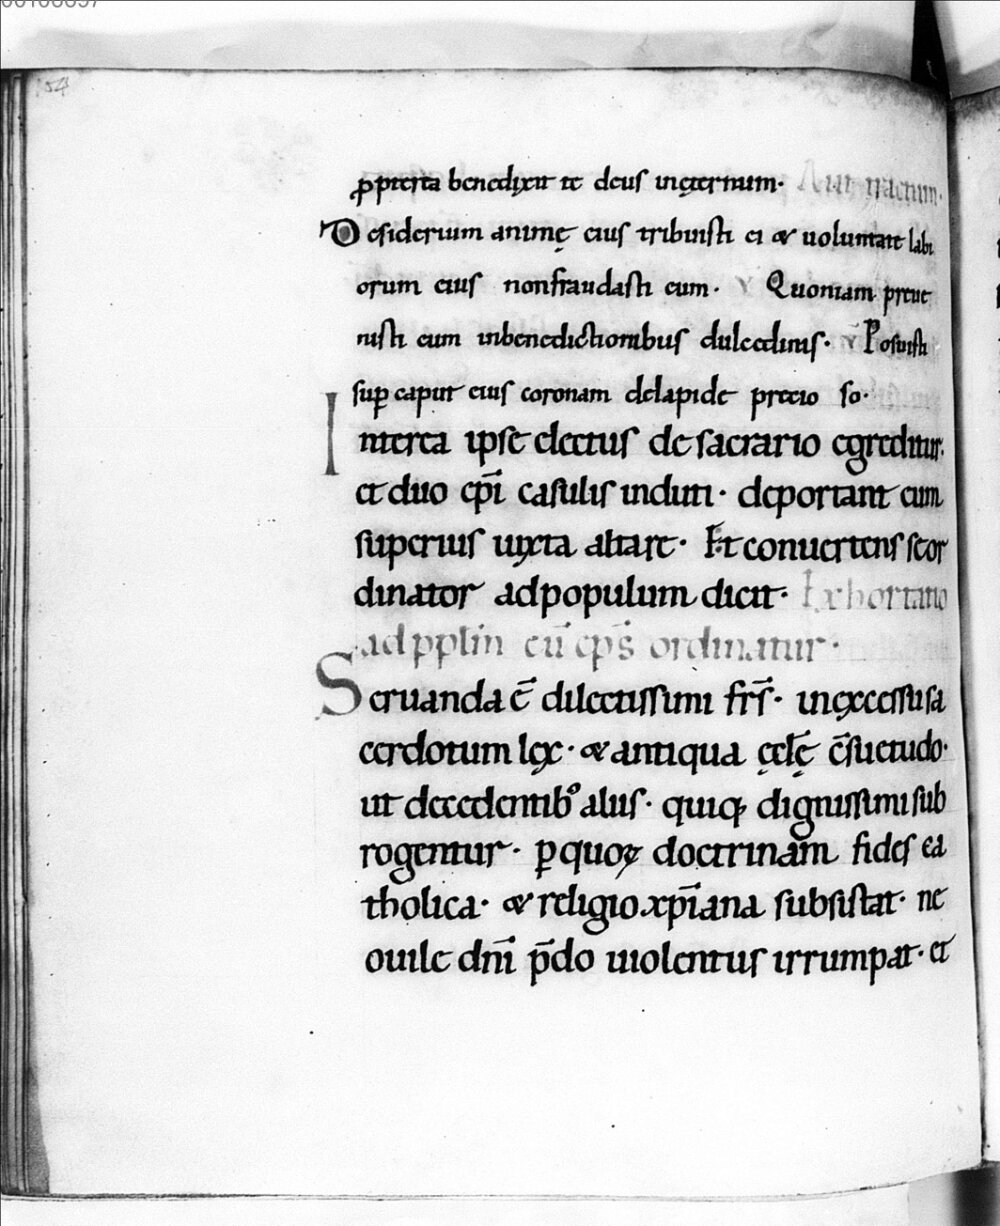 ꝓpterea benedixit te deus inęternum·
Desiderium animę eius tribuisti ei & uoluntate labi
orum eius nonfraudasti eum· V Quoniam preue
nisti eum inbenedictionibus dulcedinis· V Posuisti
suꝑ caput eius coronam delapide precio so·
Interea ipse electus de sacrario egreditur·
et duo ep̄i casulis induti· deportant eum
superius iuxta altare· Et conuertens se or
dinator adpopulum dicit· Exhortatio
ad pplm̄ cū ep̄s ordinatur·
Seruanda ē dilectissimi frs̄· inexcessu sa
cerdotum lex· & antiqua ęclę c̄suetudo·
ut decedentibꝰ aliis· quiqꝫ dignissimi sub
rogentur· ꝑ quoꝝ doctrinam fides ca
tholica· & religio xp̄iana subsistat· ne
ouile dn̄i p̄do uiolentus irrumpat· et